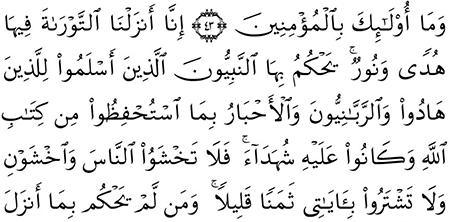 وَمَآ أُوْلَـٰٓئِكَ بِٱلْمُؤْمِنِينَ ۝٤٣ إِنَّآ أَنزَلْنَا ٱلتَّوْرَىٰةَ فِيهَا
هُدًى وَنُورٌ ۚ يَحْكُمُ بِهَا ٱلنَّبِيُّونَ ٱلَّذِينَ أَسْلَمُواْ لِلَّذِينَ
هَادُواْ وَٱلرَّبَّـٰنِيُّونَ وَٱلْأَحْبَارُ بِمَا ٱسْتُحْفِظُواْ مِن كِتَـٰبِ
ٱللَّهِ وَكَانُواْ عَلَيْهِ شُهَدَآءَ ۚ فَلَا تَخْشَوُاْ ٱلنَّاسَ وَٱخْشَوْنِ
وَلَا تَشْتَرُواْ بِـَٔايَـٰتِى ثَمَنًا قَلِيلًا ۚ وَمَن لَّمْ يَحْكُم بِمَآ أَنزَلَ